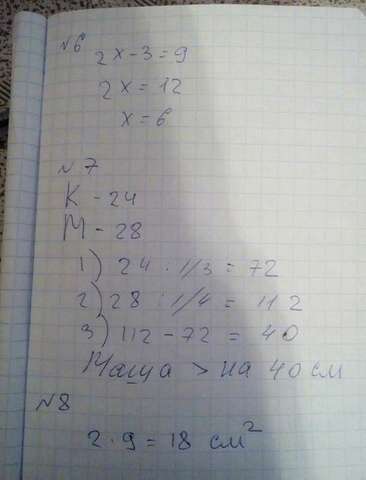 №6
2x-3=9
2x=12
x=6
№7
К - 24
М - 28
1) 24 : 1/3 = 72
2) 28 : 1/4 = 112
3) 112 - 72 = 40
Маша > на 40 см
№8
2·9=18 см²